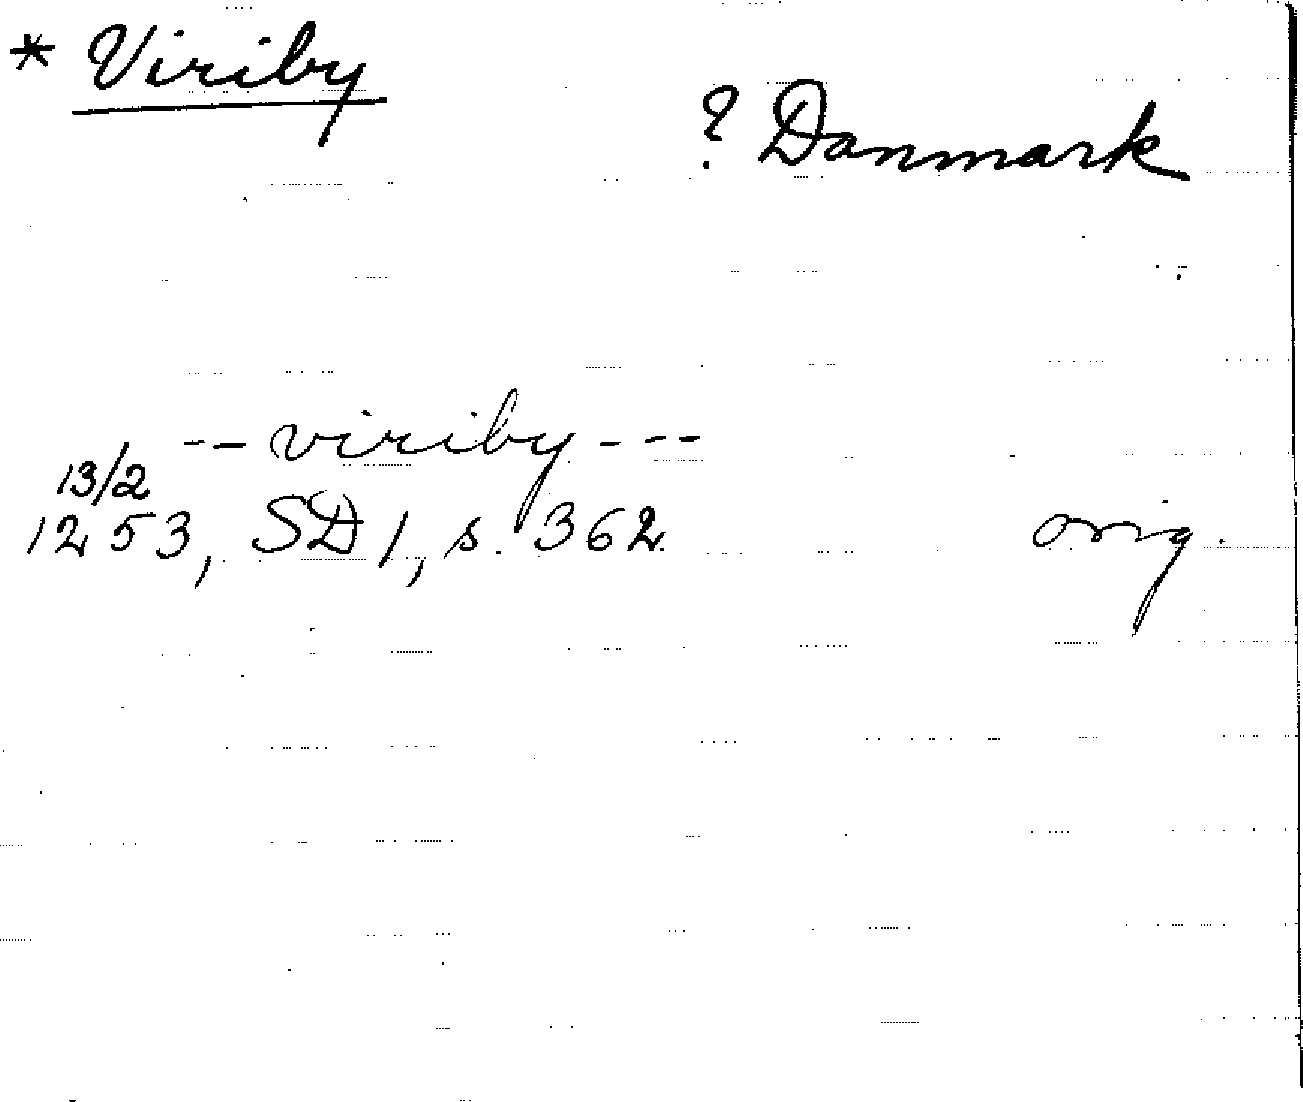 * Viriby
? Danmark
-- viriby ---
13/2
1253, SD 1, s. 362 orig.